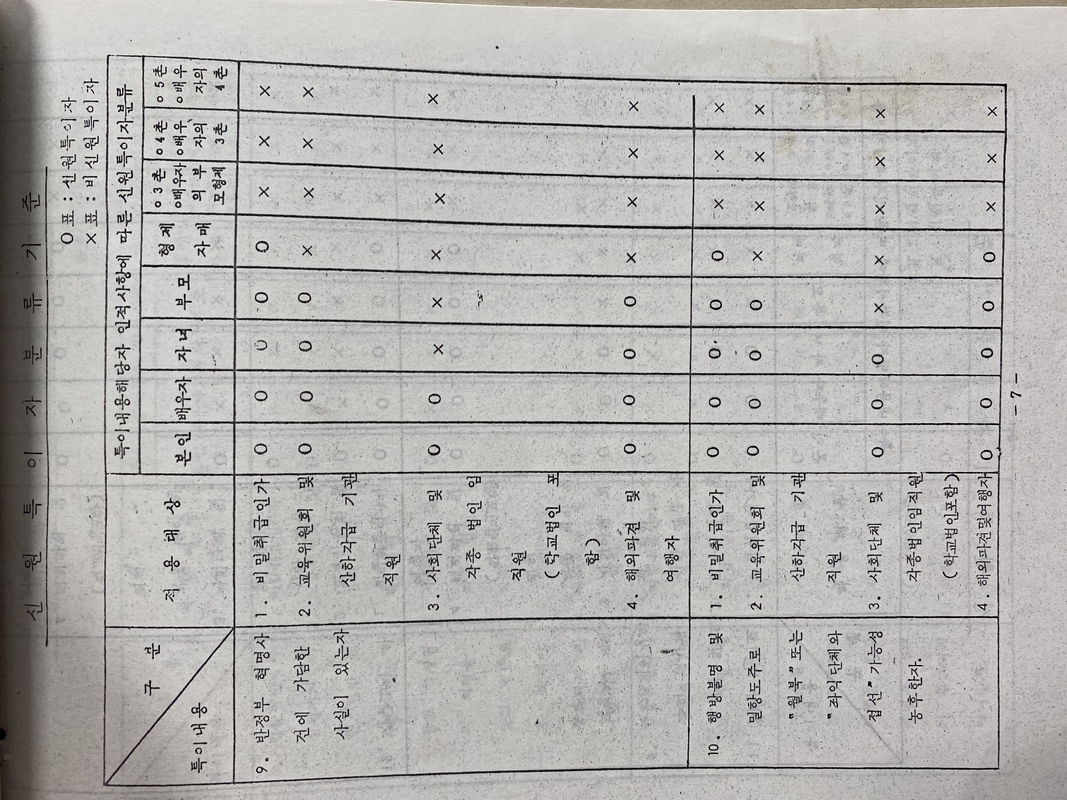 신 원 특 이 자 분 류 기 준
O 표 : 신원특이자
× 표 : 비신원특이자
구 분
특이내용
적 용 대 상
특이내용해당자 인적사항에 따른 신원특이자분류
본인
배우자
자녀
부모
형제
자매
o 3촌
o배우자
의 부
모형제
o 4촌
o배우
자의
3촌
o 5촌
o배우
자의
4촌
9. 반정부 혁명사
건에 가담한
사실이 있는자
1. 비밀취급인가 O O O O O × × ×
2. 교육위원회 및 O O O O × × × ×
산하각급 기관
직원
3. 사회단체 및 O O × × × × × ×
각종 법인 임
직원
(학교법인 포
함)
4. 해외파견 및 O O O O × × × ×
여행자
10. 행방불명 및
밀항도주로
"월북" 또는
"좌익단체와
접선" 가능성
농후한자.
1. 비밀취급인가 O O O O O × × ×
2. 교육위원회 및 O O O O × × × ×
산하각급 기관
직원
3. 사회단체 및 O O O × × × × ×
각종법인임직원
(학교법인포함)
4. 해외파견및여행자 O O O O O × × ×
- 7 -